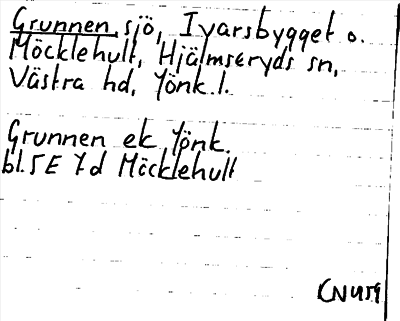 Grunnen, sjö, Ivarsbygget o.
Möcklehult, Hjälmseryds sn,
Västra hd, Jönk. l.
Grunnen ek Jönk.
bl. 5E 7d Möcklehult
CNU59